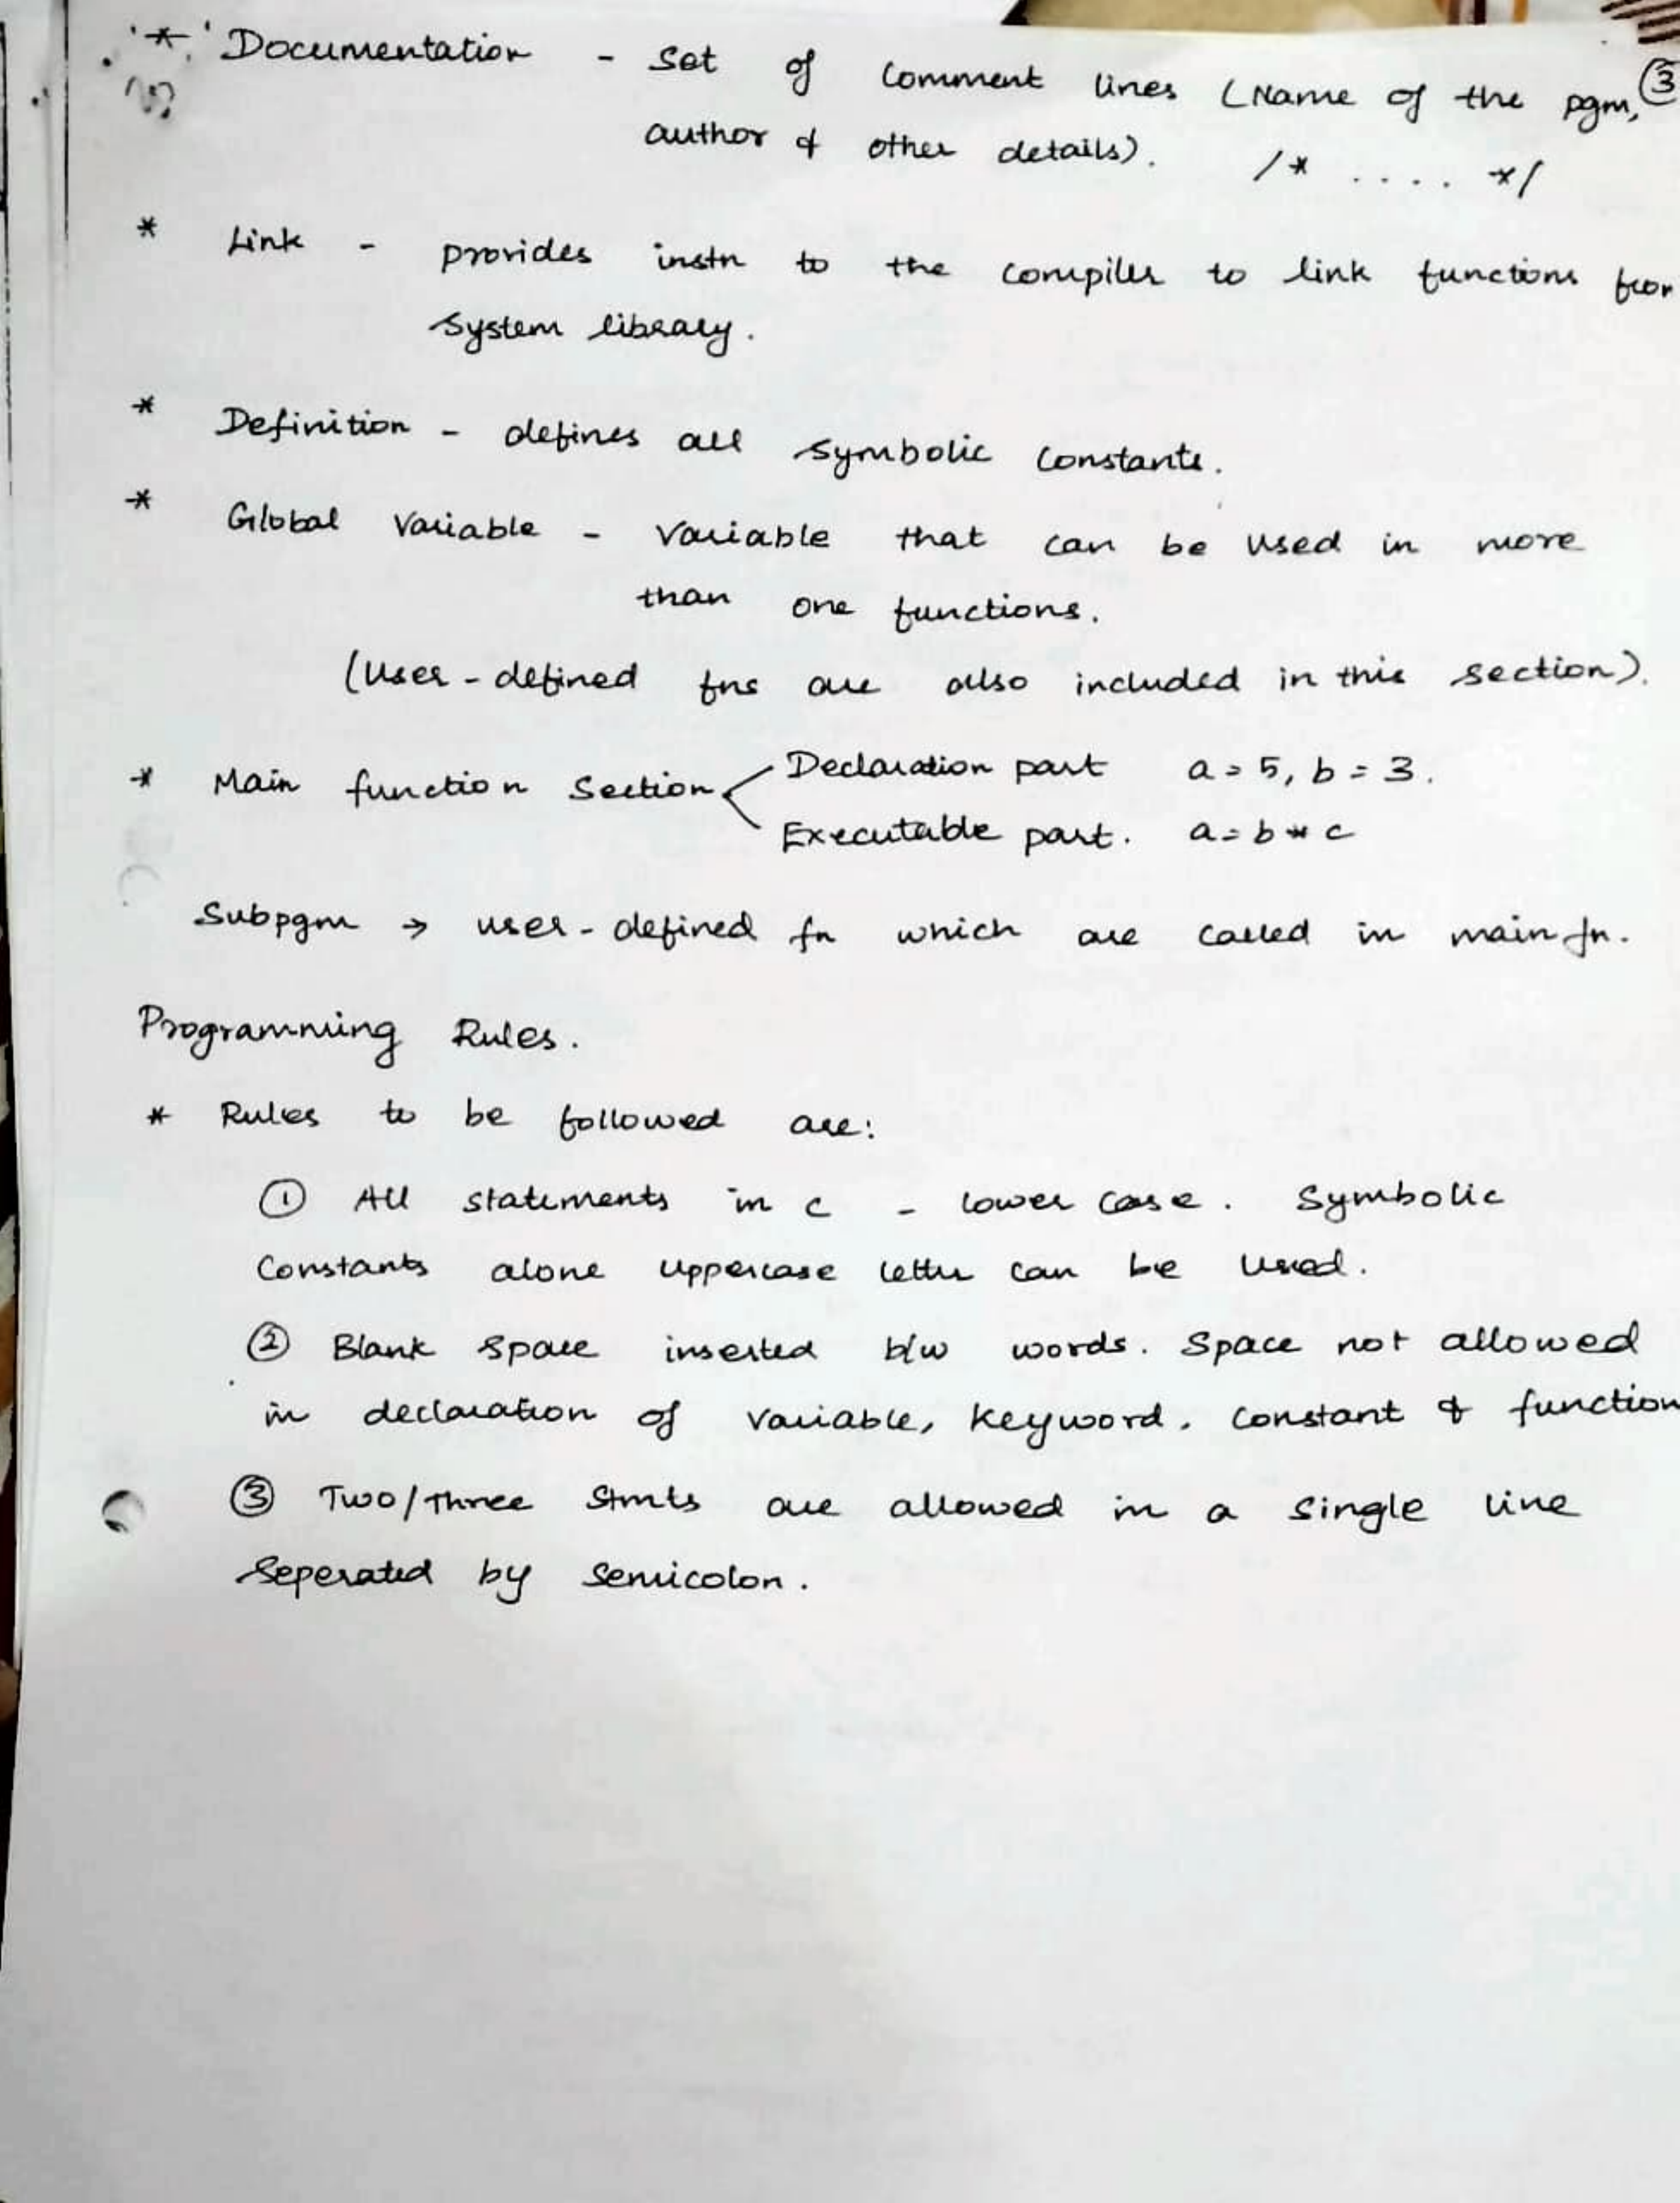 * Documentation - Set of Comment lines (Name of the pgm, ③
author & other details). /* .... */
* Link - provides instn to the compiler to link functions from
system library.
* Definition - defines all symbolic constants.
* Global Variable - Variable that can be used in more
than one functions.
(User-defined fns are also included in this section).
* Main function Section < Declaration part a = 5, b = 3.
Executable part. a = b * c
Subpgm → user-defined fn which are called in main fn.
Programming Rules.
* Rules to be followed are:
① All statements in c - lower case. Symbolic
Constants alone uppercase letter can be used.
② Blank space inserted b/w words. Space not allowed
in declaration of variable, keyword, constant & function
③ Two/Three Stmts are allowed in a single line
seperated by semicolon.